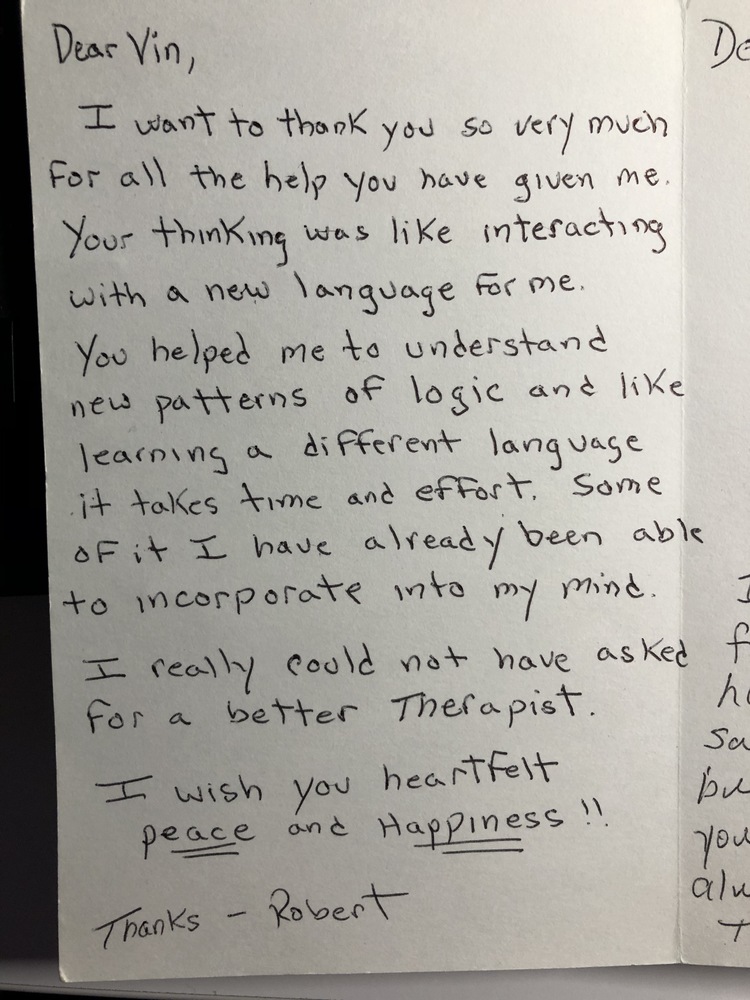 Dear Vin,
I want to thank you so very much
for all the help you have given me.
Your thinking was like interacting
with a new language for me.
You helped me to understand
new patterns of logic and like
learning a different language
it takes time and effort. Some
of it I have already been able
to incorporate into my mind.
I really could not have asked
for a better Therapist.
I wish you heartfelt
peace and Happiness!!
Thanks - Robert